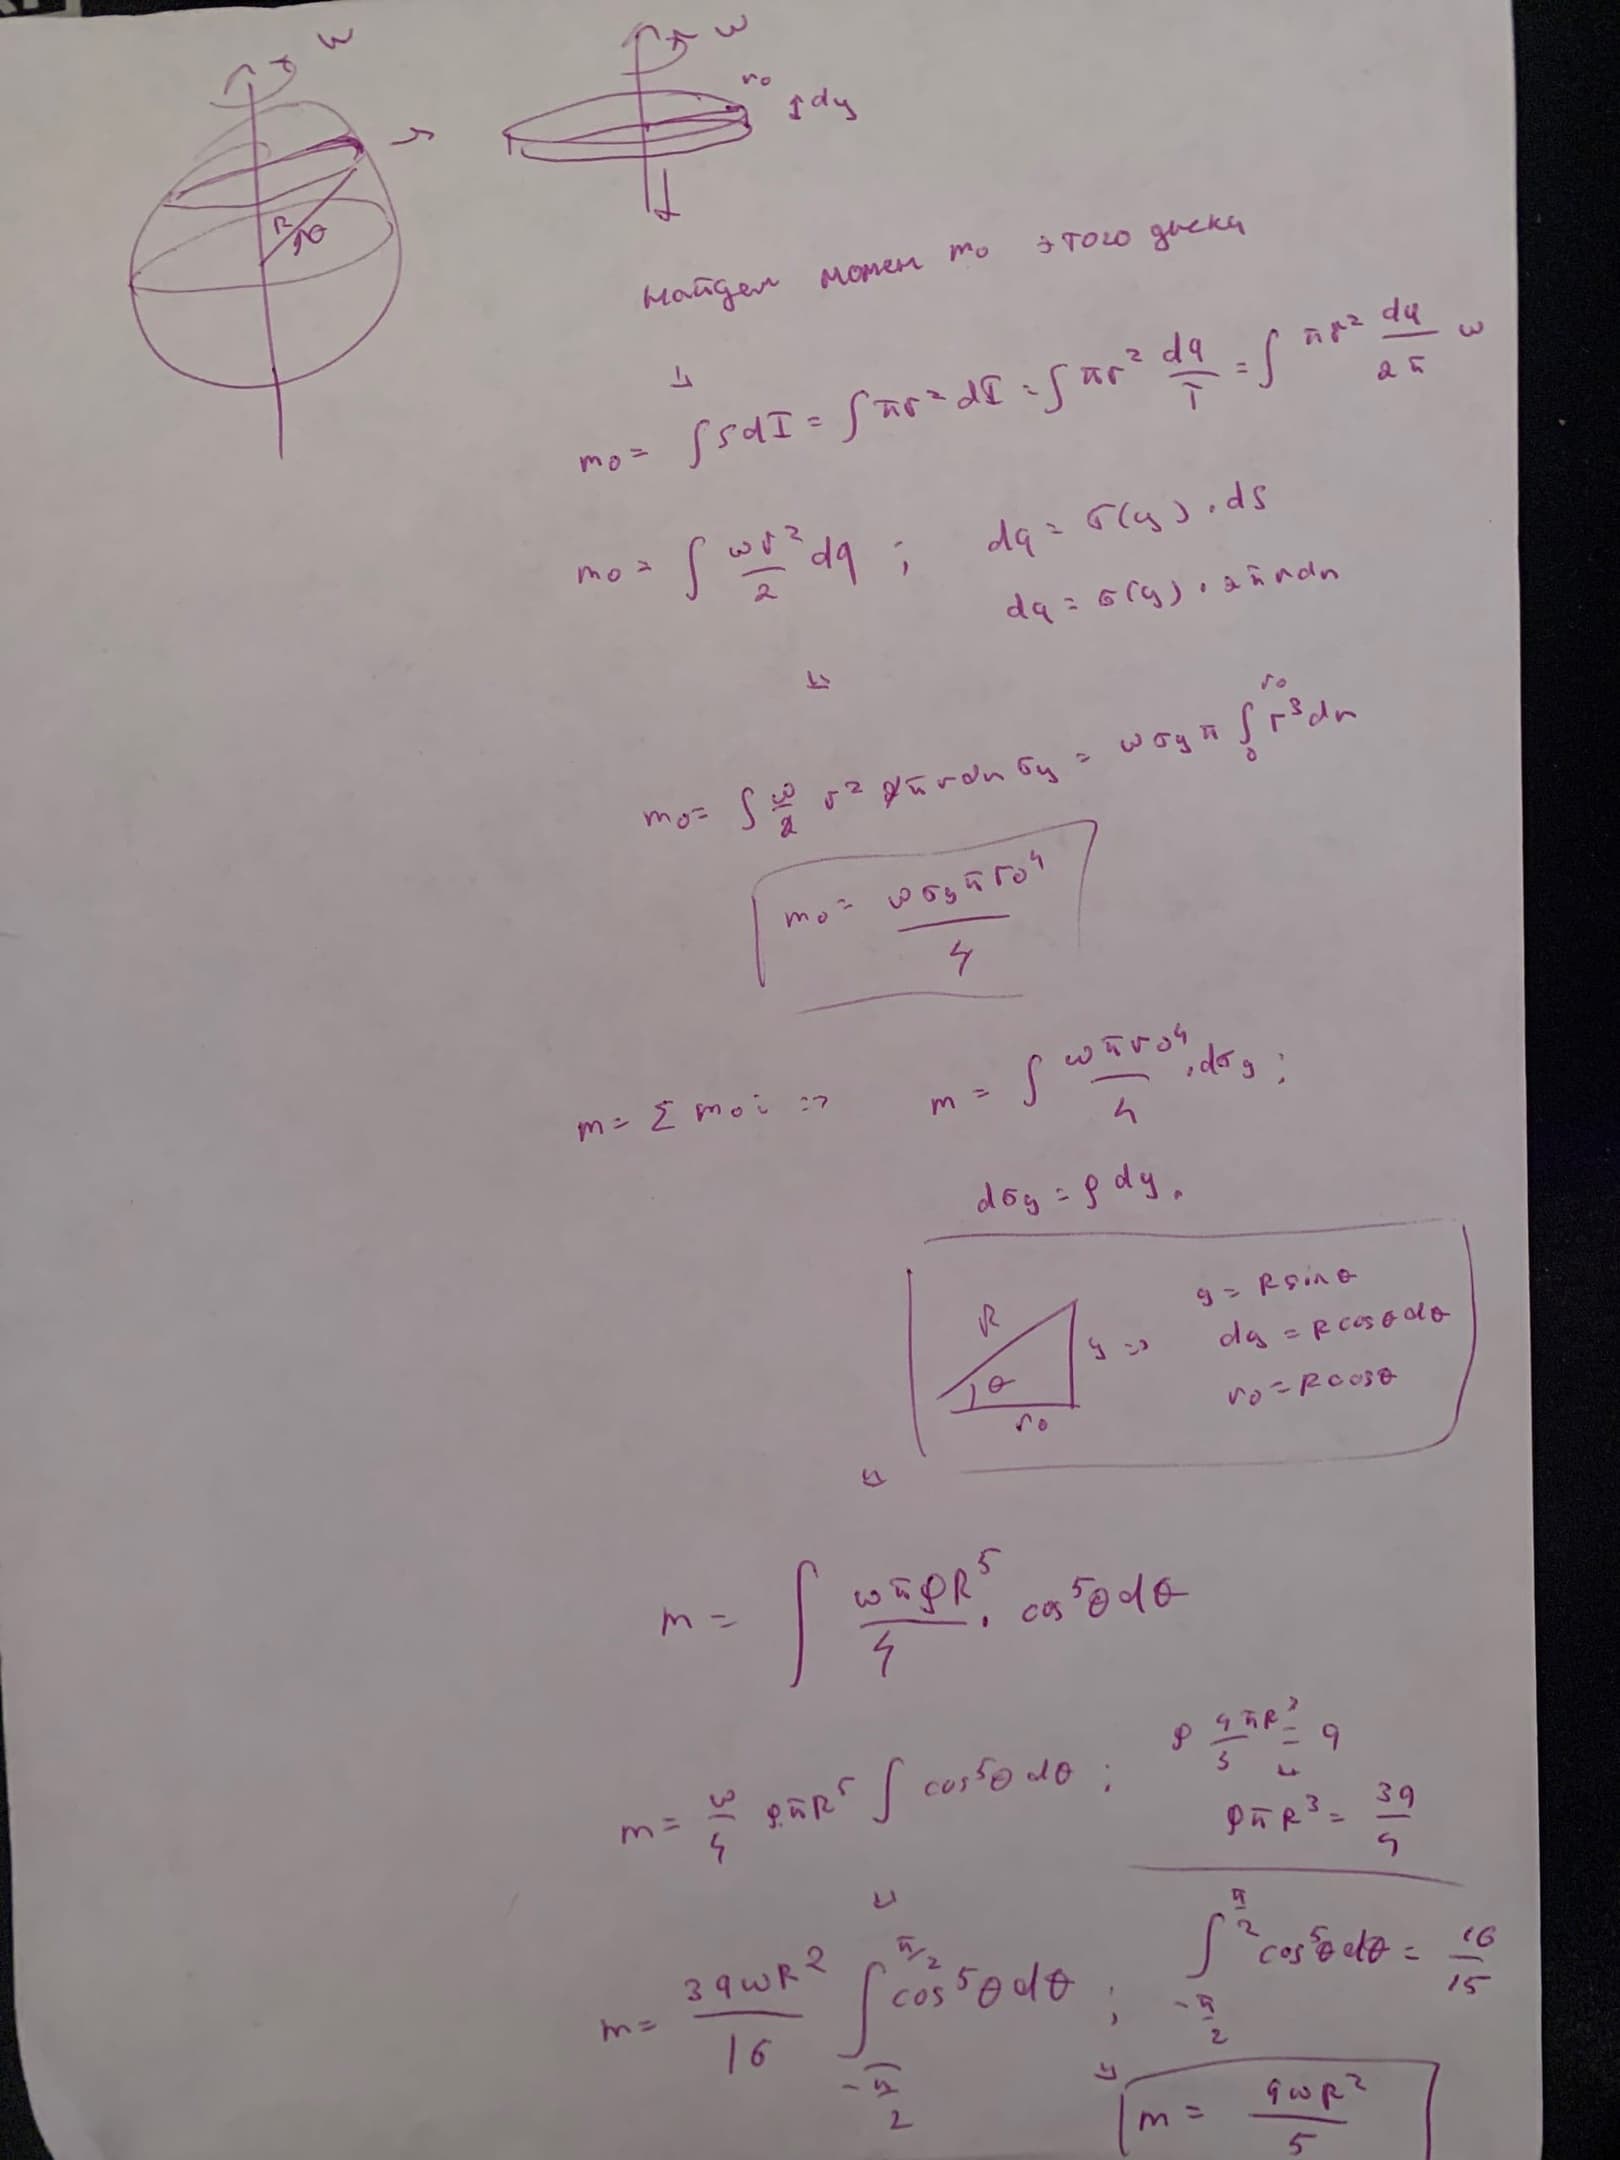 ω
ω
r₀
↕dy
R
θ
Найдем момен m₀ этого диска
m₀ = ∫SdI = ∫πr²dI = ∫πr² dq/T = ∫πr² dq/2π ω
m₀ = ∫ωr²/2 dq ; dq = σ(y)·dS
dq = σ(y)·2πrdr
m₀ = ∫ω/2 r² 2πrdr σy = ωσyπ ∫₀^r₀ r³dr
m₀ = ωσyπr₀⁴/4
m = Σ m₀i => m = ∫ωπr₀⁴/4 ·dσy ;
dσy = ρdy.
R
θ
r₀
y => y = Rsinθ
dy = Rcosθdθ
r₀ = Rcosθ
m = ∫ωπρR⁵/4 · cos⁵θdθ
m = ω/4 ρπR⁵ ∫cos⁵θdθ ; ρ 4πR³/3 = q
ρπR³ = 3q/4
m = 3qωR²/16 ∫_{-π/2}^{π/2} cos⁵θdθ ; ∫_{-π/2}^{π/2} cos⁵θdθ = 16/15
m = qωR²/5